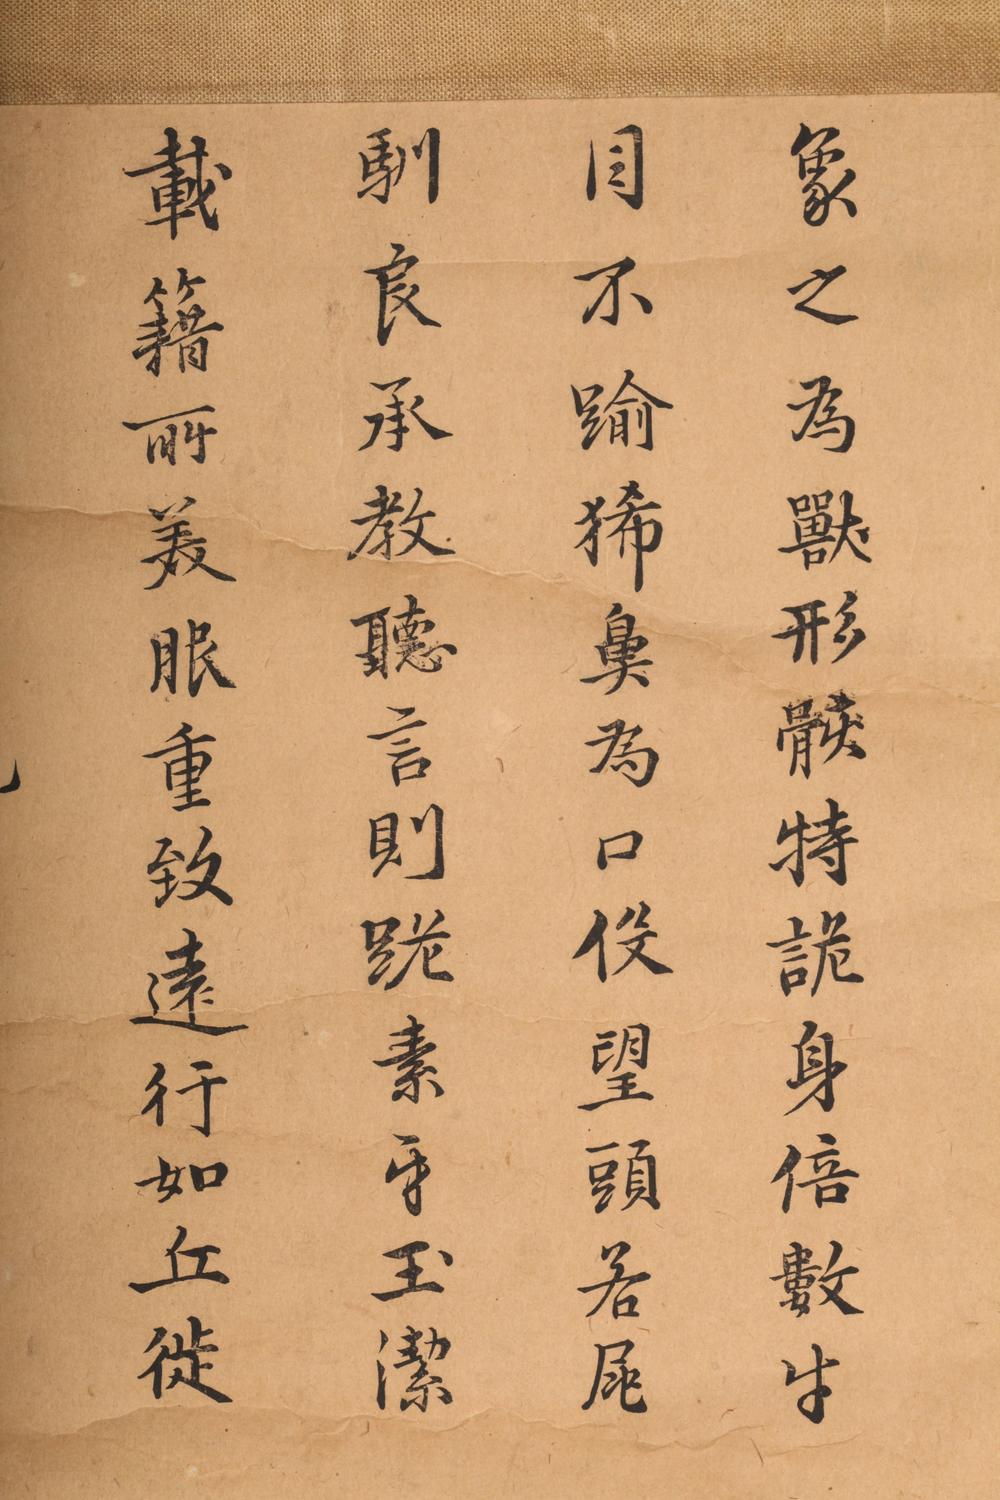 象之為獸形骸特詭身倍數牛
目不踰狶鼻為口役望頭若尾
馴良承教聽言則跪素牙玉潔
載籍所美服重致遠行如丘徙